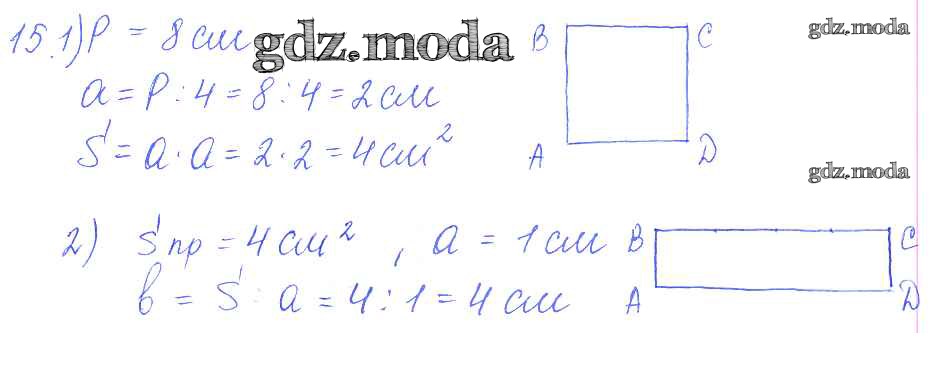 15.1) P = 8 см gdz.moda B C gdz.moda
a = P : 4 = 8 : 4 = 2 см
S = a · a = 2 · 2 = 4 см² A D
gdz.moda
2) S пр = 4 см², a = 1 см B C
b = S : a = 4 : 1 = 4 см A D